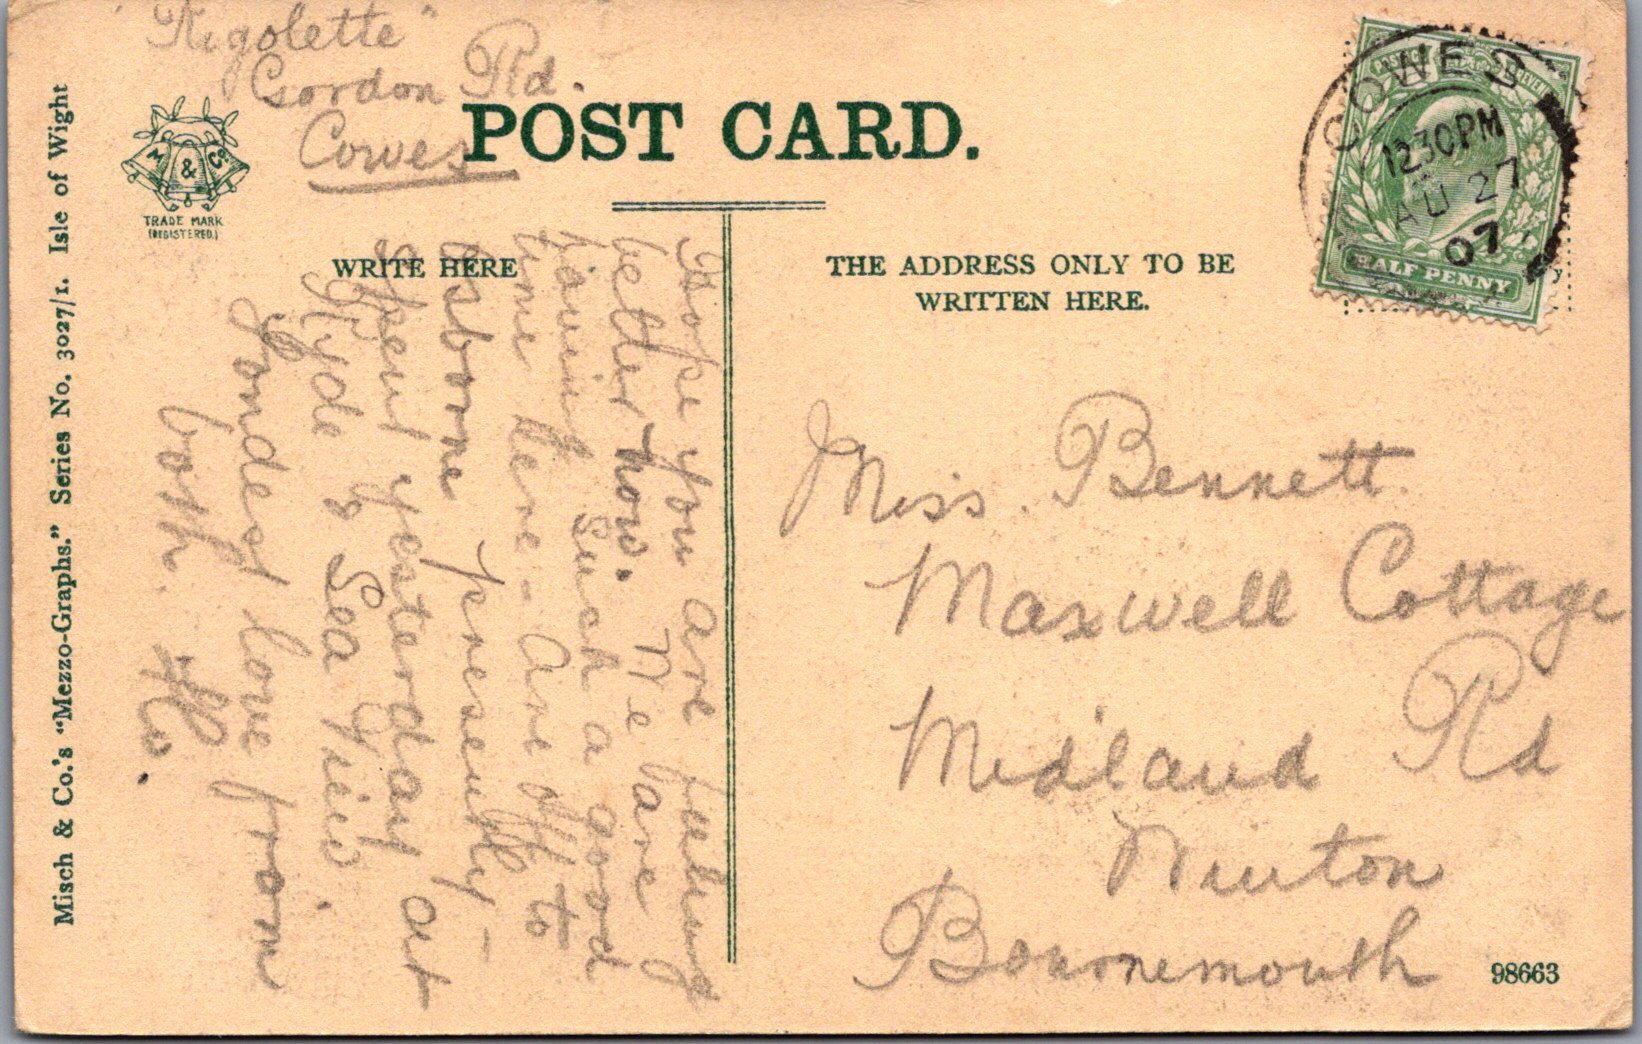 "Rigolette"
Gordon Rd.
Cowes
POST CARD.
M & Co
TRADE MARK
(REGISTERED.)
WRITE HERE
THE ADDRESS ONLY TO BE
WRITTEN HERE.
COWES
12.30PM
AU 27
07
HALF PENNY
Misch & Co.'s "Mezzo-Graphs." Series No. 3027/1. Isle of Wight
Hope you are feeling
better now. We have
having such a good
time here - Are off to
Osborne presently -
Spent yesterday at
Ryde & Sea View.
Fondest love from
both. Flo.
Miss. Bennett
Maxwell Cottage
Midland Rd
Winton
Bournemouth
98663